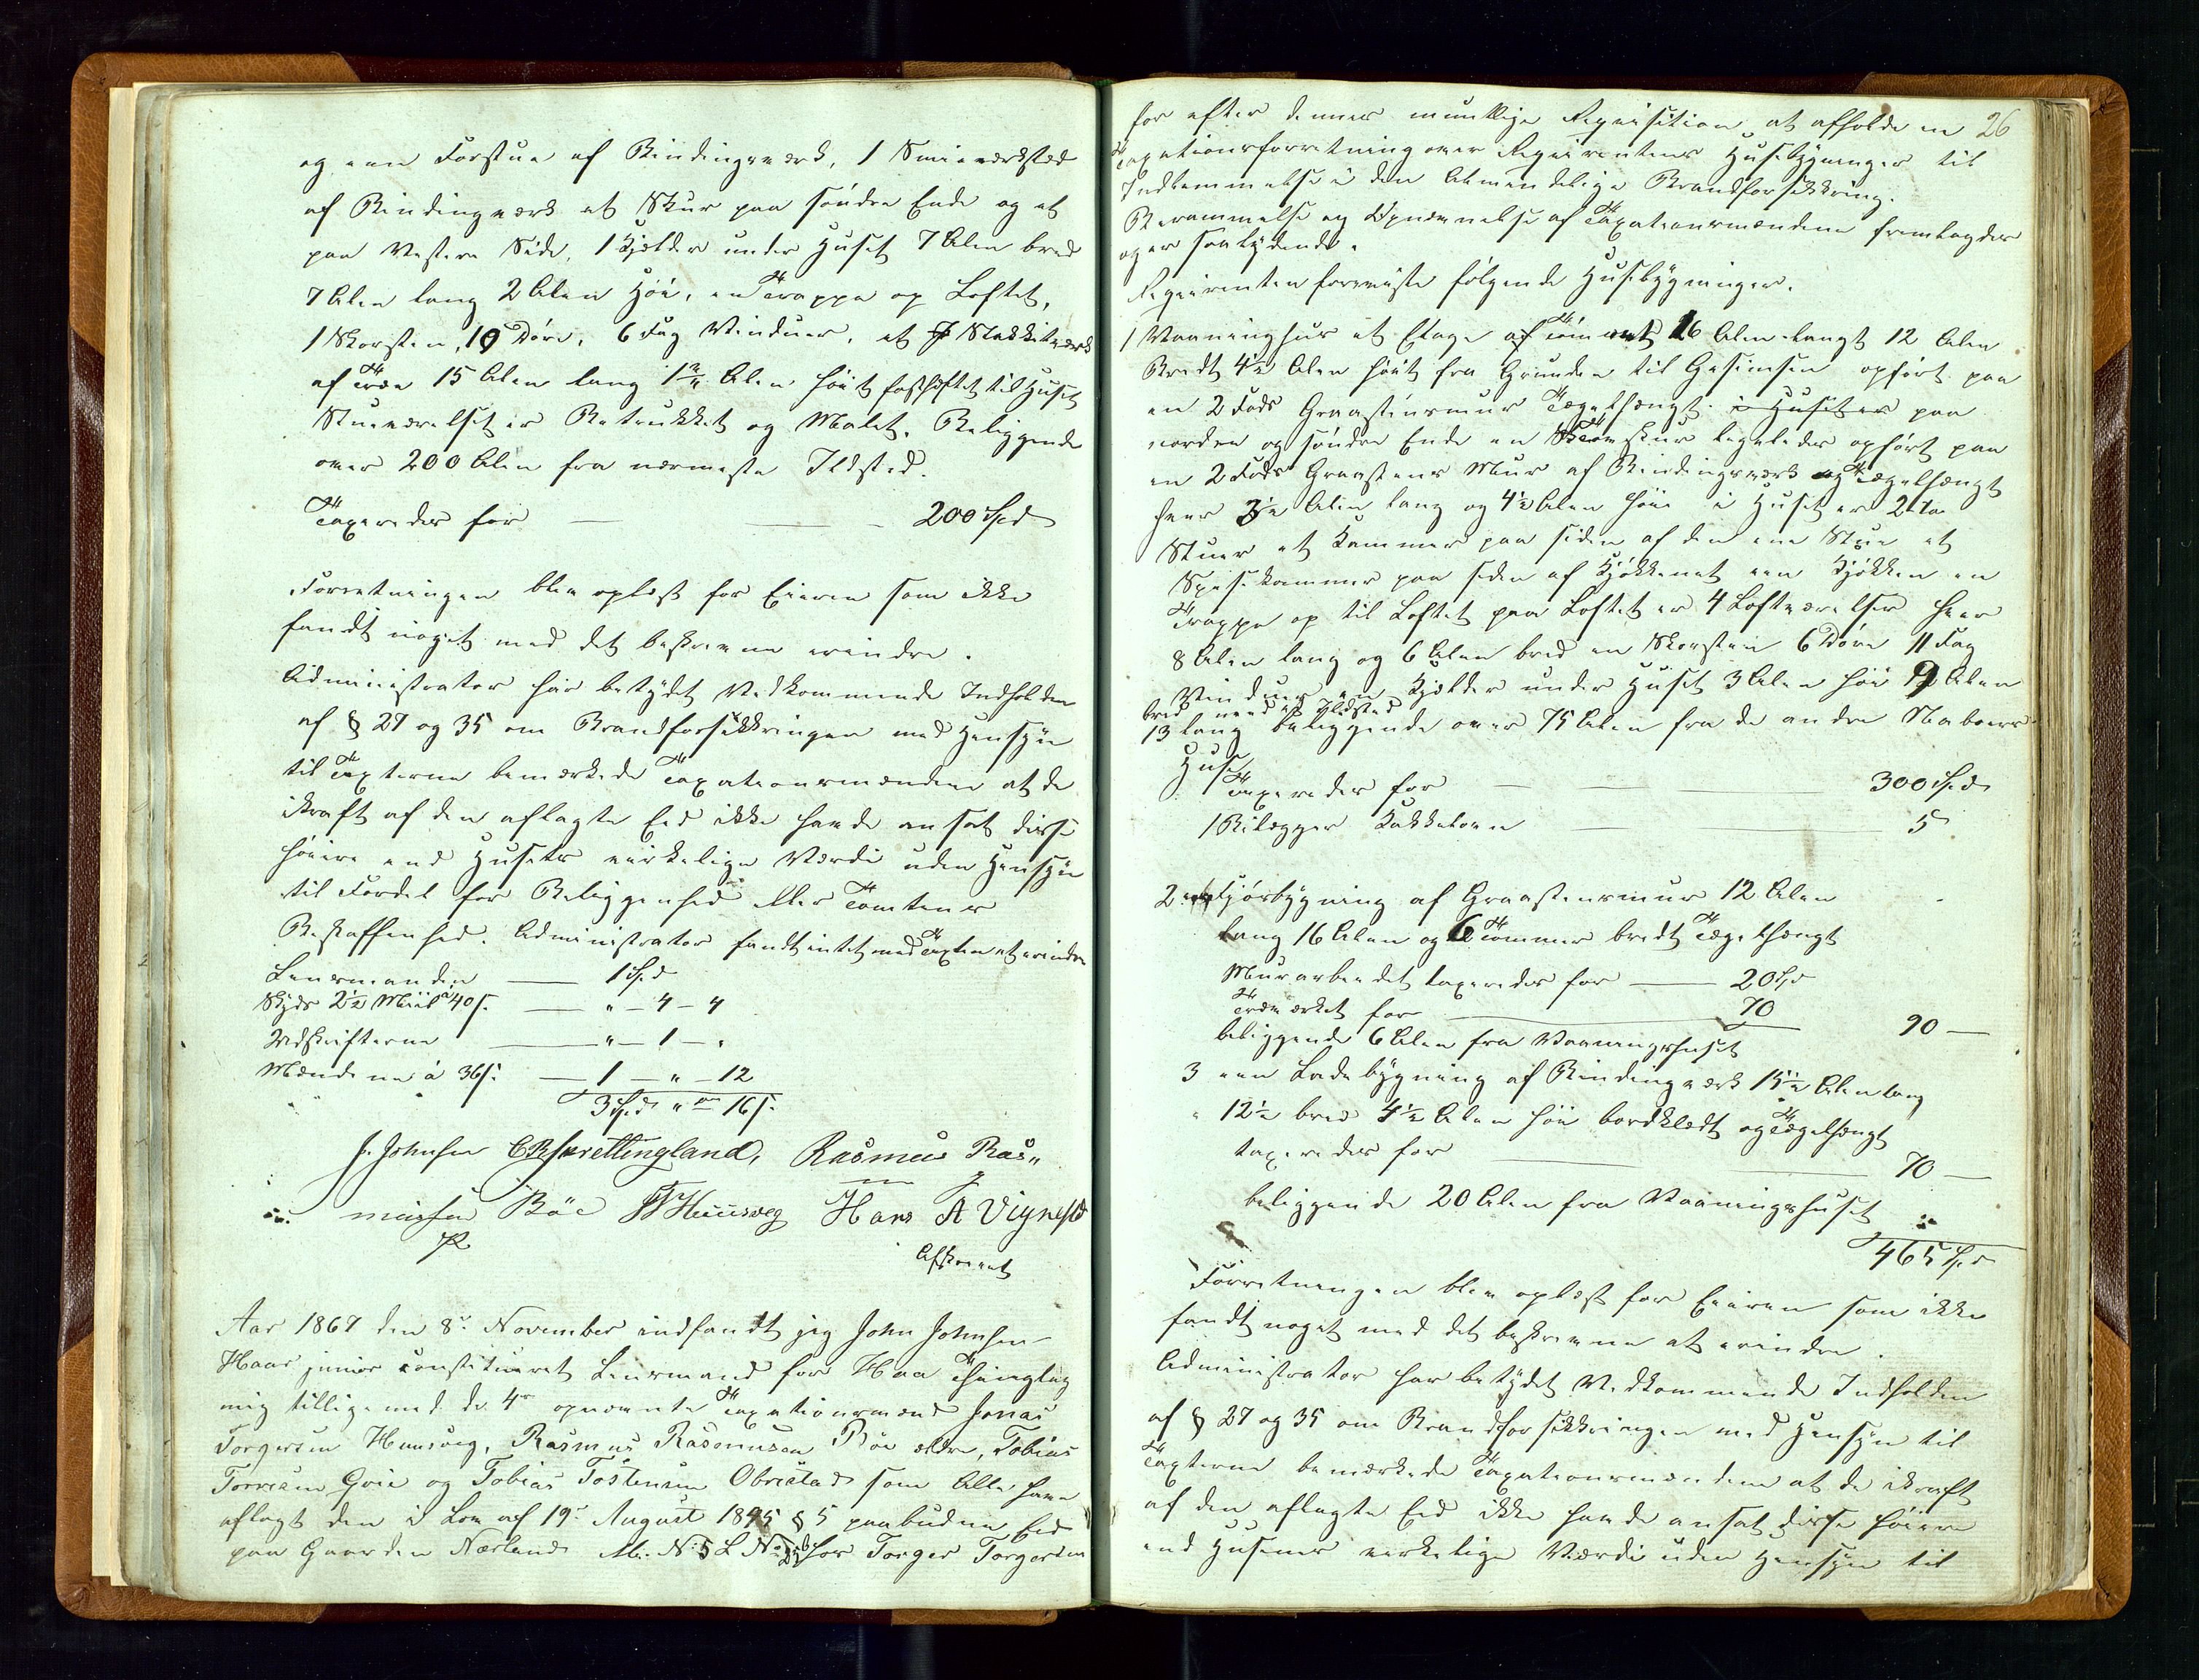 og een Forstue af Bindingværk, 1 Smieværksted
af Bindingværk et Skur paa søndre Ende og et
paa Vestere Side, 1 Kjælder under Huset 7 Alen bred
7 Alen lang 2 Alen Høi, en Trappe op Loftet,
1 Skorsten, 10 Døre, 6 Fag Vinduer, et Stakkitværk
af Træe 15 Alen lang 1 3/4 Alen høit fasthæftet til Huset
Stueværelset er Betrukket og Malet. Beliggende
over 200 Alen fra nærmeste Ildsted.
Taxeredes for — — 200 Spd
Forretningen blev oplæst for Eieren som ikke
fandt noget med det beskrevne erindre.
Administrator har betydet Vedkommende Indholden
af § 27 og 35 om Brandforsikkringen med Hensyn
til Taxterne bemærkede Taxationsmændene at de
ikraft af den aflagte Eed ikke havde ansat disse
høiere end Husets virkelige Værdi uden Hensyn
til Fordel for Beliggenhed eller Tomtens
Beskaffenhed. Administrator fandt intet med Taxten at erindre
Lensmanden — 1 Spd
Skyds 2 1/2 Miil á 40 s. — " - 4 - 4
Udskrifterne — " - 1 - "
Mændene á 36 s. — 1 - " - 12
3 Spd " - 16 s.
J. Johnsen CRSprettingland, Rasmus Ras„
mussen Böe JT Huusveg Hans A Vigrestd
Afskrevet
Aar 1867 den 8de November indfandt jeg John Johnsen
Haar junior constitueret Lensmand for Haa Thinglag
mig tillige med de 4re opnævnte Taxationsmænd Jonas
Torgersen Huusveg, Rasmus Rasmussen Böe ældre, Tobias
Torresen Goie og Tobias Tostensen Obrestad som Alle have
aflagt den i Lov af 19de August 1845 § 5 paabudne Eed
paa Gaarden Nærland M. N: 5 L No hos Torger Torgersen
26
for efter dennes mundlige Requisition at afholde en
Taxationsforretning over Requirentens Husebygninger til
Indlemmelse i den Almindelige Brandforsikkring.
Berammelse og Opnævnelse af Taxationsmændene fremlagdes
og er saalydende.
Requirenten foreviste følgende Husebygninger.
1 Vaaninghus et Etage af Tømmer 16 Alen langt 12 Alen
Bredt 4 1/2 Alen høit fra Grunden til Gesimsen opført paa
en 2 Fods Graastensmur Tægelhængt. i Huset er paa
nordre og søndre Ende en Skur ligeledes opført paa
en 2 Fods Graastens Mur af Bindingsværk og Tægelhængt
hver 3 1/2 Alen lang og 4 1/2 Alen høi i Huset er 2to
Stuer et Kammer paa siden af den ene Stue et
Spisekammer paa siden af Kjøkkenet een Kjøkken en
Trappe op til Loftet paa Loftet er 4 Loftværelser hver
8 Alen lang og 6 Alen bred en Skorsten 6 Døre 11 Fag
Vinduer en Kjælder under Huset 3 Alen høi 9 Alen
bred med et Ildsted
13 lang beliggende over 75 Alen fra de andre Naboers
Huse
Taxeredes for — — — 300 Spd
1 Bilægger Kakkelovn — — 5
2 Fjøsbygning af Graastensmur 12 Alen
lang 16 Alen og 6 Tommer bredt Tægelhængt
Murarbeidet taxeredes for — 20 Spd
Træværket for — 70 90 —
beliggende 6 Alen fra Vaaningshuset
3 een Ladebygning af Bindingværk 15 1/2 Alen lang
" 12 1/2 bred 4 1/2 Alen høi bordklædt og Tægelhængt
taxeredes for — — 70 —
beliggende 20 Alen fra Vaaningshuset
465 Spd
Forretningen blev oplæst for Eieren som ikke
fandt noget med det beskrevne at erindre.
Administrator har betydet Vedkommende Indholden
af § 27 og 35 om Brandforsikkringen med Hensyn til
Taxterne bemærkede Taxationsmændene at de ikraft
af den aflagte Eed ikke havde ansat disse høiere
end Husenes virkelige Værdi uden Hensyn til